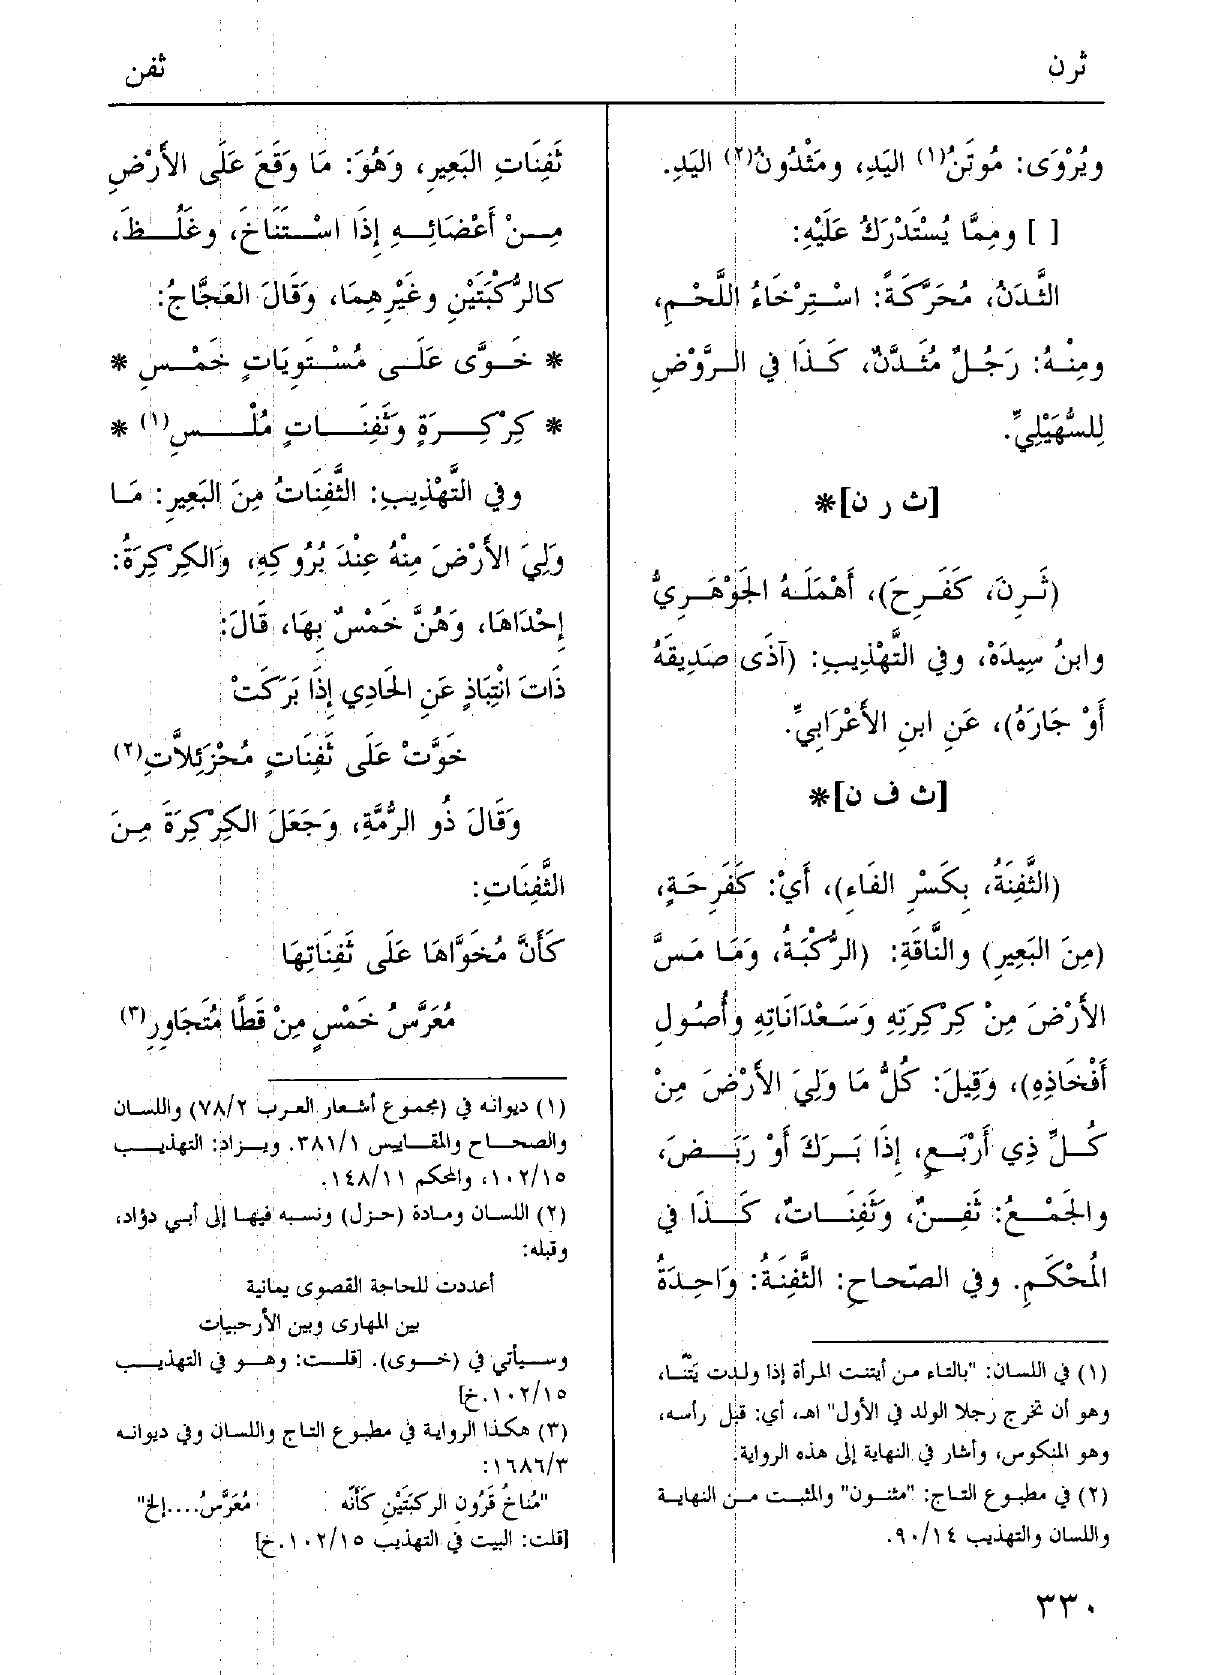 ثرن
ثفن
ويُرْوَى: مُوتَنُ(١) اليَدِ، ومَثْدُونُ(٢) اليَدِ.
[ ] ومِمَّا يُسْتَدْرَكُ عَلَيْهِ:
الثَّدَنُ، مُحَرَّكَةً: اسْتِرْخَاءُ اللَّحْمِ،
ومِنْهُ: رَجُلٌ مُثَدَّنٌ، كَذَا فِي الرَّوْضِ
لِلسُّهَيْلِيِّ.
[ث ر ن]*
(ثَرِنَ، كَفَرِحَ)، أَهْمَلَهُ الجَوْهَرِيُّ
وابنُ سِيدَهْ، وفي التَّهْذِيبِ: (آذَى صَدِيقَهُ
أَوْ جَارَهُ)، عَنِ ابنِ الأَعْرَابِيِّ.
[ث ف ن]*
(الثَّفِنَةُ، بِكَسْرِ الفَاءِ)، أَيْ: كَفَرِحَةٍ،
(مِنَ البَعِيرِ) والنَّاقَةِ: (الرُّكْبَةُ، وَمَا مَسَّ
الأَرْضَ مِنْ كِرْكِرَتِهِ وَسَعْدَانَاتِهِ وأُصُولِ
أَفْخَاذِهِ)، وَقِيلَ: كُلُّ مَا وَلِيَ الأَرْضَ مِنْ
كُلِّ ذِي أَرْبَعٍ، إِذَا بَرَكَ أَوْ رَبَضَ،
والجَمْعُ: ثَفِنٌ، وَثَفِنَاتٌ، كَذَا فِي
المُحْكَمِ. وفي الصّحاحِ: الثَّفِنَةُ: وَاحِدَةُ
(١) في اللسان: "بالتاء من أيتنت المرأة إذا ولدت يَتْنًا،
وهو أن تخرج رجلا الولد في الأول" اهـ، أي: قبل رأسه،
وهو المنكوس، وأشار في النهاية إلى هذه الرواية.
(٢) في مطبوع التاج: "مثنون" والمثبت من النهاية
واللسان والتهذيب ٩٠/١٤.
ثَفِنَاتِ البَعِيرِ، وَهُوَ: مَا وَقَعَ عَلَى الأَرْضِ
مِنْ أَعْضَائِهِ إِذَا اسْتَنَاخَ، وغَلُظَ،
كالرُّكْبَتَيْنِ وغَيْرِهِمَا، وَقَالَ العَجَّاجُ:
* خَوَّى عَلَى مُسْتَوِيَاتٍ خَمْسِ *
* كِرْكِرَةٍ وَثَفِنَاتٍ مُلْسِ(١) *
وفي التَّهْذِيبِ: الثَّفِنَاتُ مِنَ البَعِيرِ: مَا
وَلِيَ الأَرْضَ مِنْهُ عِنْدَ بُرُوكِهِ، وَالكِرْكِرَةُ:
إِحْدَاهَا، وَهُنَّ خَمْسٌ بِهَا، قَالَ:
ذَاتَ انْتِبَاذٍ عَنِ الحَادِي إِذَا بَرَكَتْ
خَوَّتْ عَلَى ثَفِنَاتٍ مُحْزَئِلَّاتِ(٢)
وَقَالَ ذُو الرُّمَّةِ، وَجَعَلَ الكِرْكِرَةَ مِنَ
الثَّفِنَاتِ:
كَأَنَّ مُخَوَّاهَا عَلَى ثَفِنَاتِهَا
مُعَرَّسُ خَمْسٍ مِنْ قَطًا مُتَجَاوِرِ(٣)
(١) ديوانه في (مجموع أشعار العرب ٧٨/٢) واللسان
والصحاح والمقاييس ٣٨١/١. ويزاد: التهذيب
١٠٢/١٥، والمحكم ١٤٨/١١.
(٢) اللسان ومادة (حزل) ونسبه فيها إلى أبي دؤاد،
وقبله:
أعددت للحاجة القصوى يمانية
بين المهارى وبين الأرحبيات
وسيأتي في (خوى). [قلت: وهو في التهذيب
١٠٢/١٥.خ]
(٣) هكذا الرواية في مطبوع التاج واللسان وفي ديوانه
١٦٨٦/٣:
"مُناخُ قَرُونِ الركبَتَيْنِ كَأنّه    مُعَرَّسُ....إلخ"
[قلت: البيت في التهذيب ١٠٢/١٥.خ]
٣٣٠